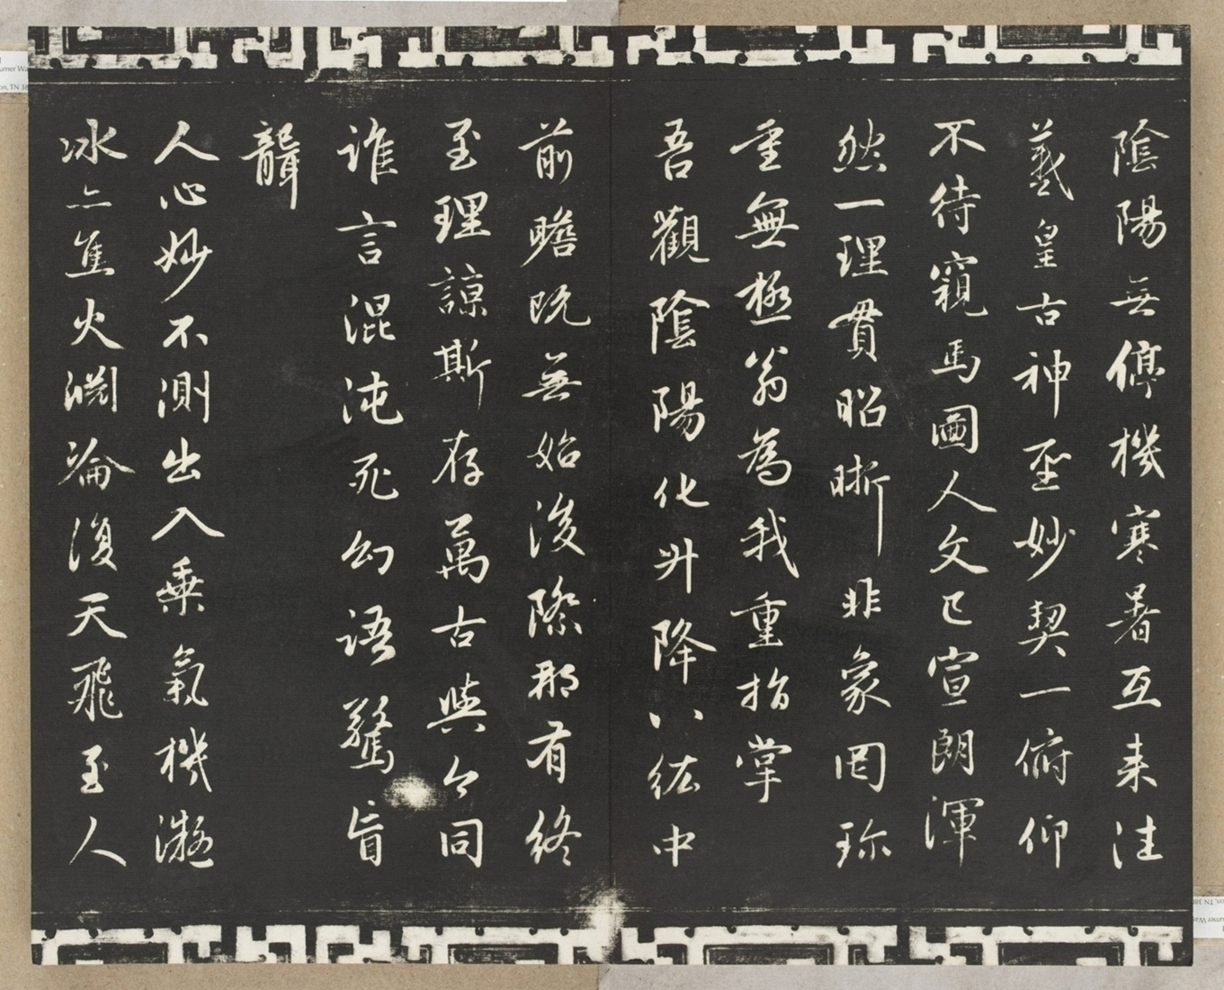 陰陽無停機寒暑互来往
羲皇古神聖妙契一俯仰
不待窺馬圖人文已宣朗渾
然一理貫昭晰非象罔珎
重無極翁為我重指掌
吾觀陰陽化升降八紘中
前瞻既無始後際那有終
至理諒斯存萬古與今同
誰言混沌死幻語驚盲
聾
人心妙不測出入乗氣機凝
冰亦焦火淵淪復天飛至人